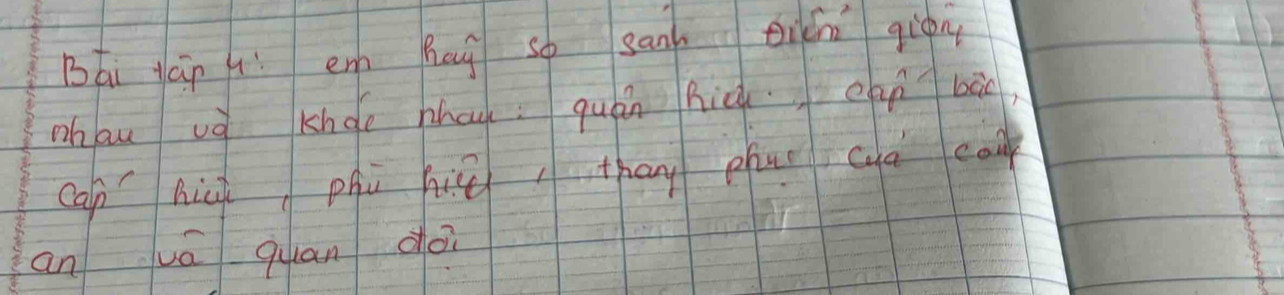 Bài tập 4: em hãy so sánh điểm giống
nhau và khác nhau: quân hiệu, cấp bậc,
cấp hiệu, phù hiệu, trang phục của công
an và quân đội